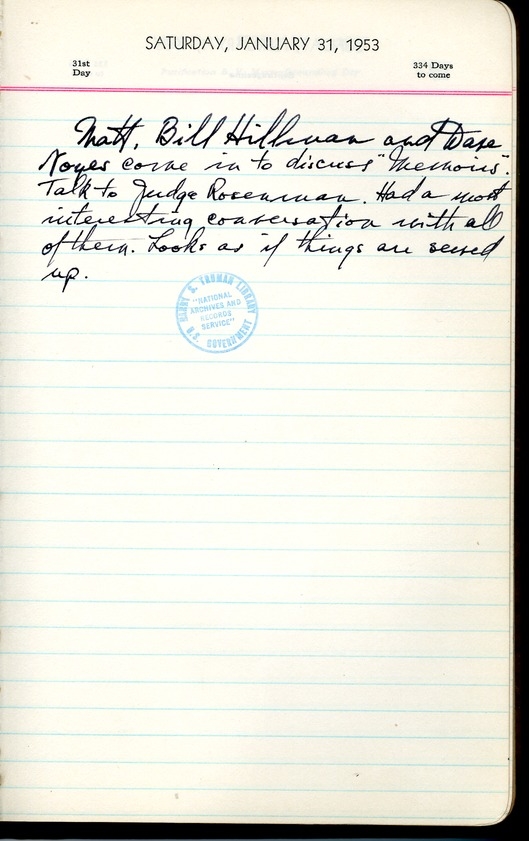 SATURDAY, JANUARY 31, 1953
31st
Day
334 Days
to come
Matt, Bill Hillman and Dave
Noyes come in to discuss "Memoirs".
Talk to Judge Rosenman. Had a most
interesting conversation with all
of them. Looks as if things are sewed
up.
HARRY S. TRUMAN LIBRARY
"NATIONAL
ARCHIVES AND
RECORDS
SERVICE"
U.S. GOVERNMENT